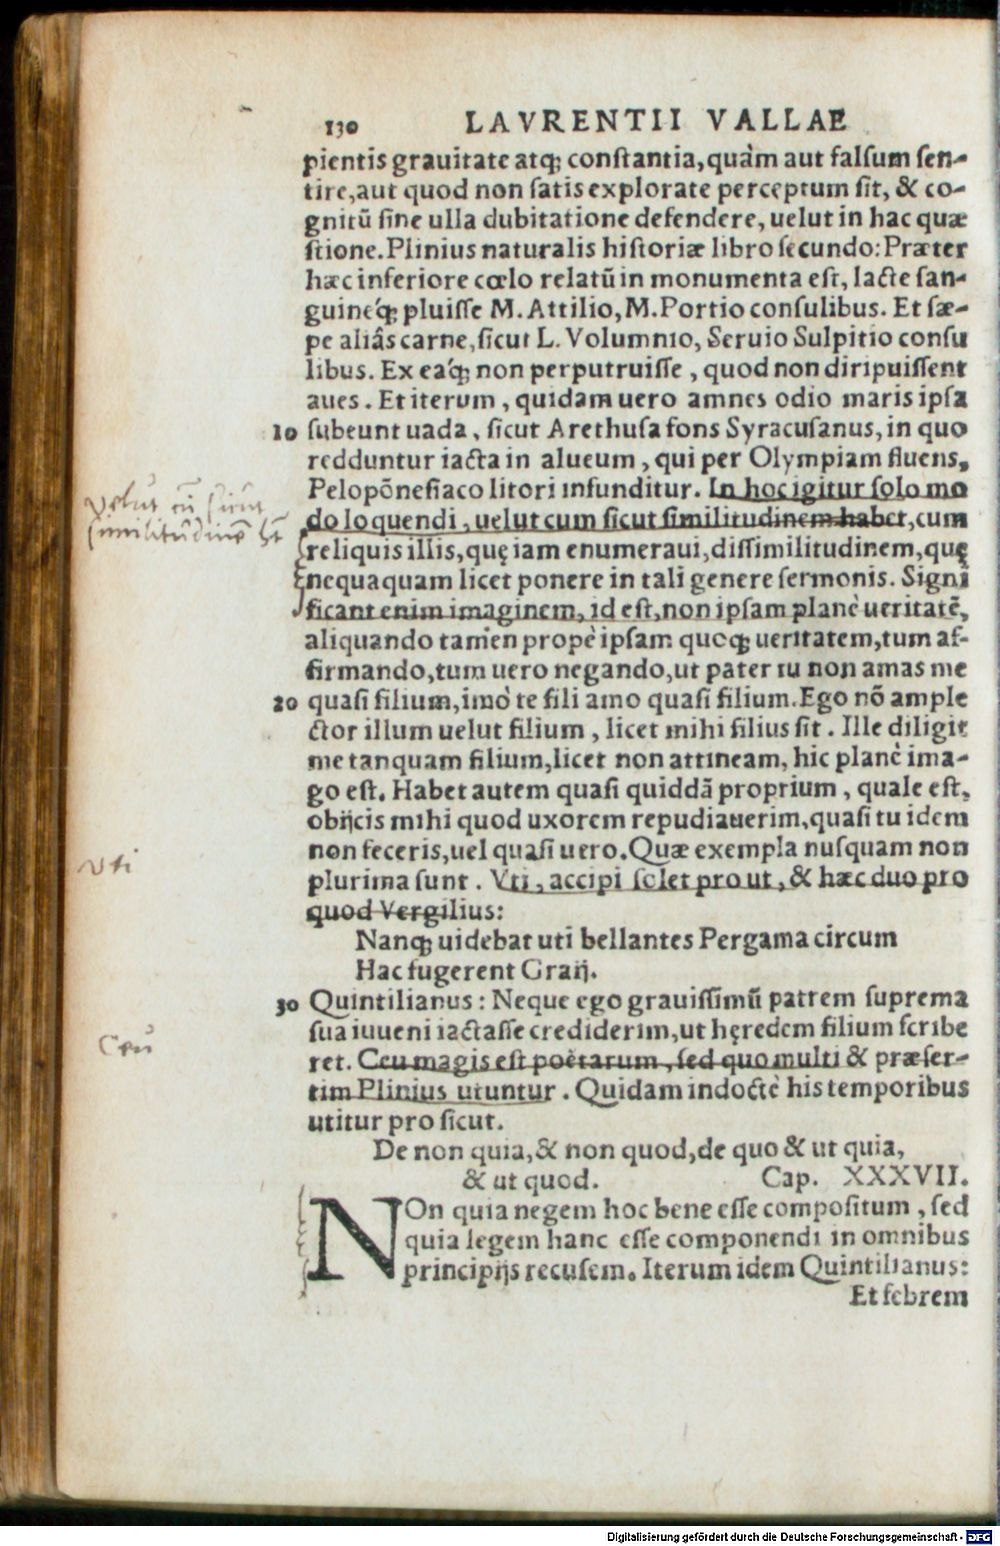 130 LAVRENTII VALLAE
pientis grauitate atq́; constantia, quàm aut falsum sen-
tire, aut quod non satis explorate perceptum sit, & co-
gnitū sine ulla dubitatione defendere, uelut in hac quæ
stione. Plinius naturalis historiæ libro secundo: Præter
hæc inferiore cœlo relatū in monumenta est, lacte san-
guineq́; pluisse M. Attilio, M. Portio consulibus. Et sæ-
pe aliâs carne, sicut L. Volumnio, Seruio Sulpitio consu
libus. Ex eaq́; non perputruisse, quod non diripuissent
aues. Et iterum, quidam uero amnes odio maris ipsa
10 subeunt uada, sicut Arethusa fons Syracusanus, in quo
redduntur iacta in alueum, qui per Olympiam fluens,
Pelopōnesiaco litori infunditur. In hoc igitur solo mo
do loquendi, uelut cum sicut similitudinem habet, cum
reliquis illis, quę iam enumeraui, dissimilitudinem, quę
nequaquam licet ponere in tali genere sermonis. Signi
ficant enim imaginem, id est, non ipsam planè ueritatē,
aliquando tamen propè ipsam quoq; ueritatem, tum af-
firmando, tum uero negando, ut pater tu non amas me
20 quasi filium, imò te fili amo quasi filium. Ego nō ample
ctor illum uelut filium, licet mihi filius sit. Ille diligit
me tanquam filium, licet non attineam, hic planè ima-
go est. Habet autem quasi quiddā proprium, quale est,
obijcis mihi quod uxorem repudiauerim, quasi tu idem
non feceris, uel quasi uero. Quæ exempla nusquam non
plurima sunt. Vti, accipi solet pro ut, & hæc duo pro
quod Vergilius:
Nanq; uidebat uti bellantes Pergama circum
Hac fugerent Graij.
30 Quintilianus: Neque ego grauissimū patrem suprema
sua iuueni iactasse crediderim, ut hęredem filium scribe
ret. Ceu magis est poëtarum, sed quo multi & præser-
tim Plinius utuntur. Quidam indoctè his temporibus
utitur pro sicut.
De non quia, & non quod, de quo & ut quia,
& ut quod. Cap. XXXVII.
NOn quia negem hoc bene esse compositum, sed
quia legem hanc esse componendi in omnibus
principijs recusem. Iterum idem Quintilianus:
Et febrem
velut cū sicut
similitudinē ht
vti
Ceu
Digitalisierung gefördert durch die Deutsche Forschungsgemeinschaft - DFG